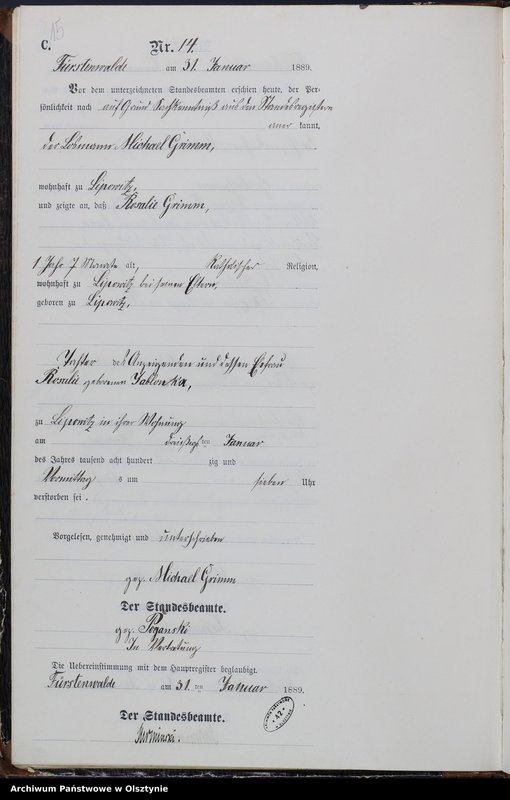 15
C.
Nr. 14.
Fürstenwalde am 31. Januar 1889.
Vor dem unterzeichneten Standesbeamten erschien heute, der Per-
sönlichkeit nach auf Grund aus den Standesregistern
aner kannt,
der Losmann Michael Grimm,
wohnhaft zu Lipowitz,
und zeigte an, daß Rosalie Grimm,
1 Jahr 7 Monate alt, katholischer Religion,
wohnhaft zu Lipowitz bei seinen Eltern,
geboren zu Lipowitz,
Tochter des Anzeigenden und dessen Ehefrau
Rosalie geborenen Jablonka,
zu Lipowitz in ihrer Wohnung
am dreißigsten Januar
des Jahres tausend acht hundert zig und
Vormittags um sieben Uhr
verstorben sei.
Vorgelesen, genehmigt und unterschrieben
gez. Michael Grimm
Der Standesbeamte.
gez. Poganski
In Vertretung
Die Uebereinstimmung mit dem Hauptregister beglaubigt.
Fürstenwalde am 31. ten Januar 1889.
Der Standesbeamte.
42
Archiwum Państwowe w Olsztynie